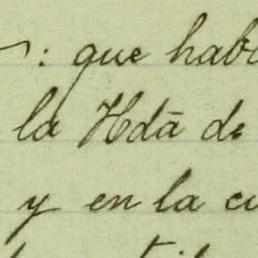 : que hab
la Hdā de
y en la cu